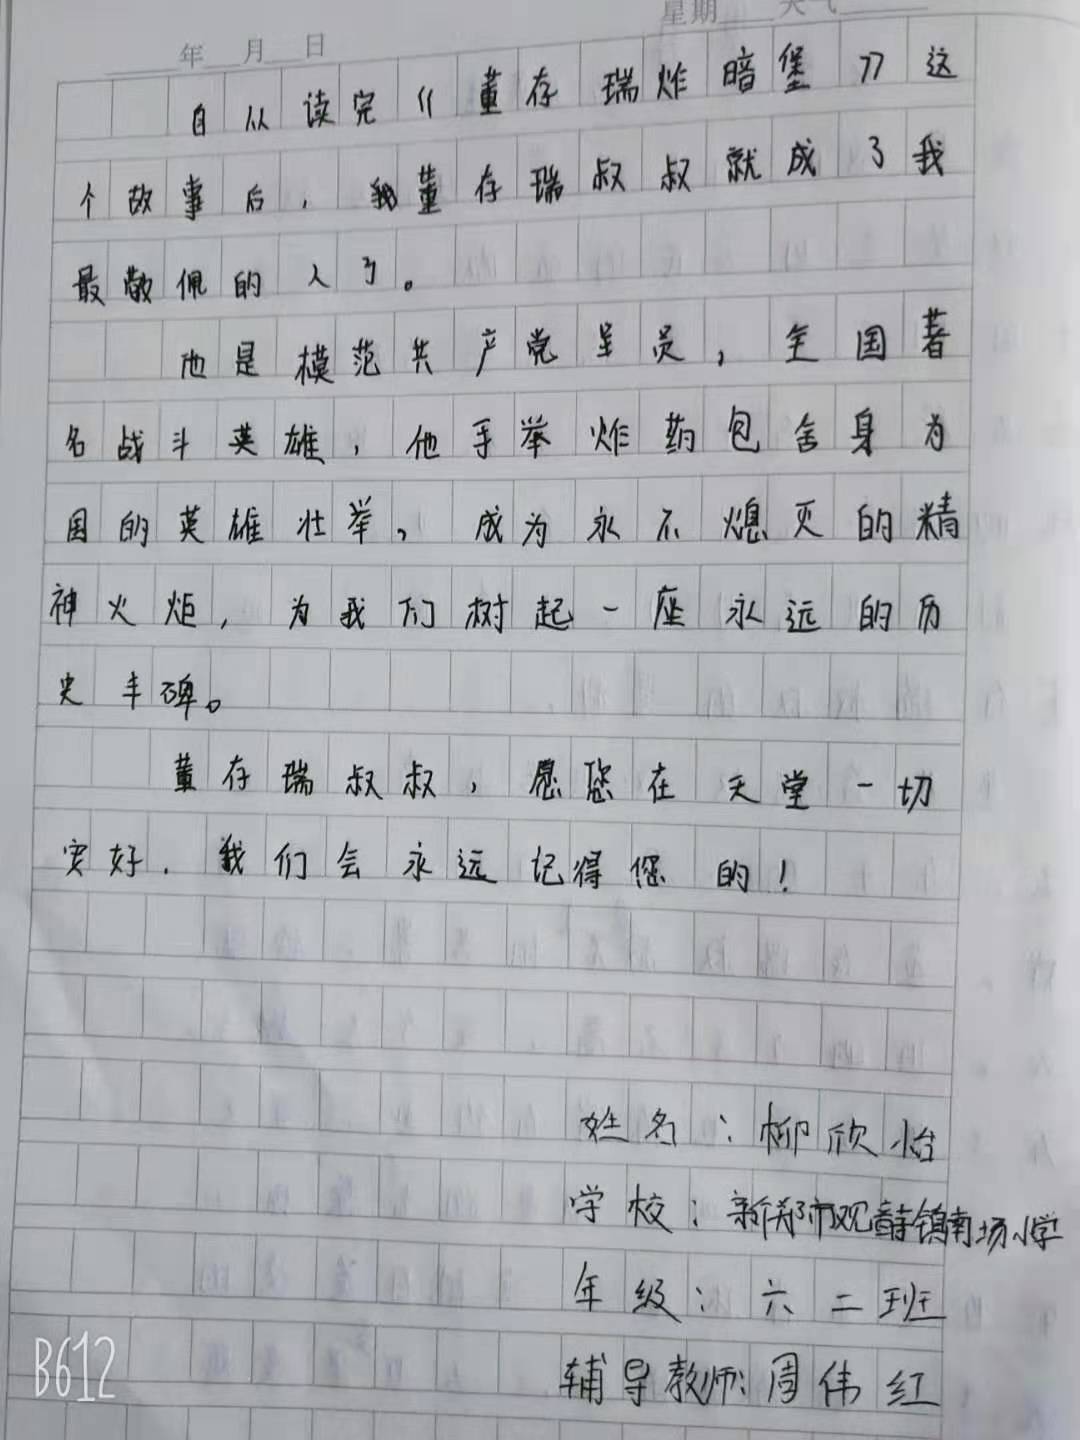 星期 天气
年 月 日
自从读完《董存瑞炸暗堡》这
个故事后，我董存瑞叔叔就成了我
最敬佩的人了。
他是模范共产党呈员，全国著
名战斗英雄，他手举炸药包舍身为
国的英雄壮举，成为永不熄灭的精
神火炬，为我们树起一座永远的历
史丰碑。
董存瑞叔叔，愿您在天堂一切
安好，我们会永远记得您的！
姓名：柳欣怡
学校：新郑市观音寺镇南场小学
年级：六二班
辅导教师：周伟红
B612